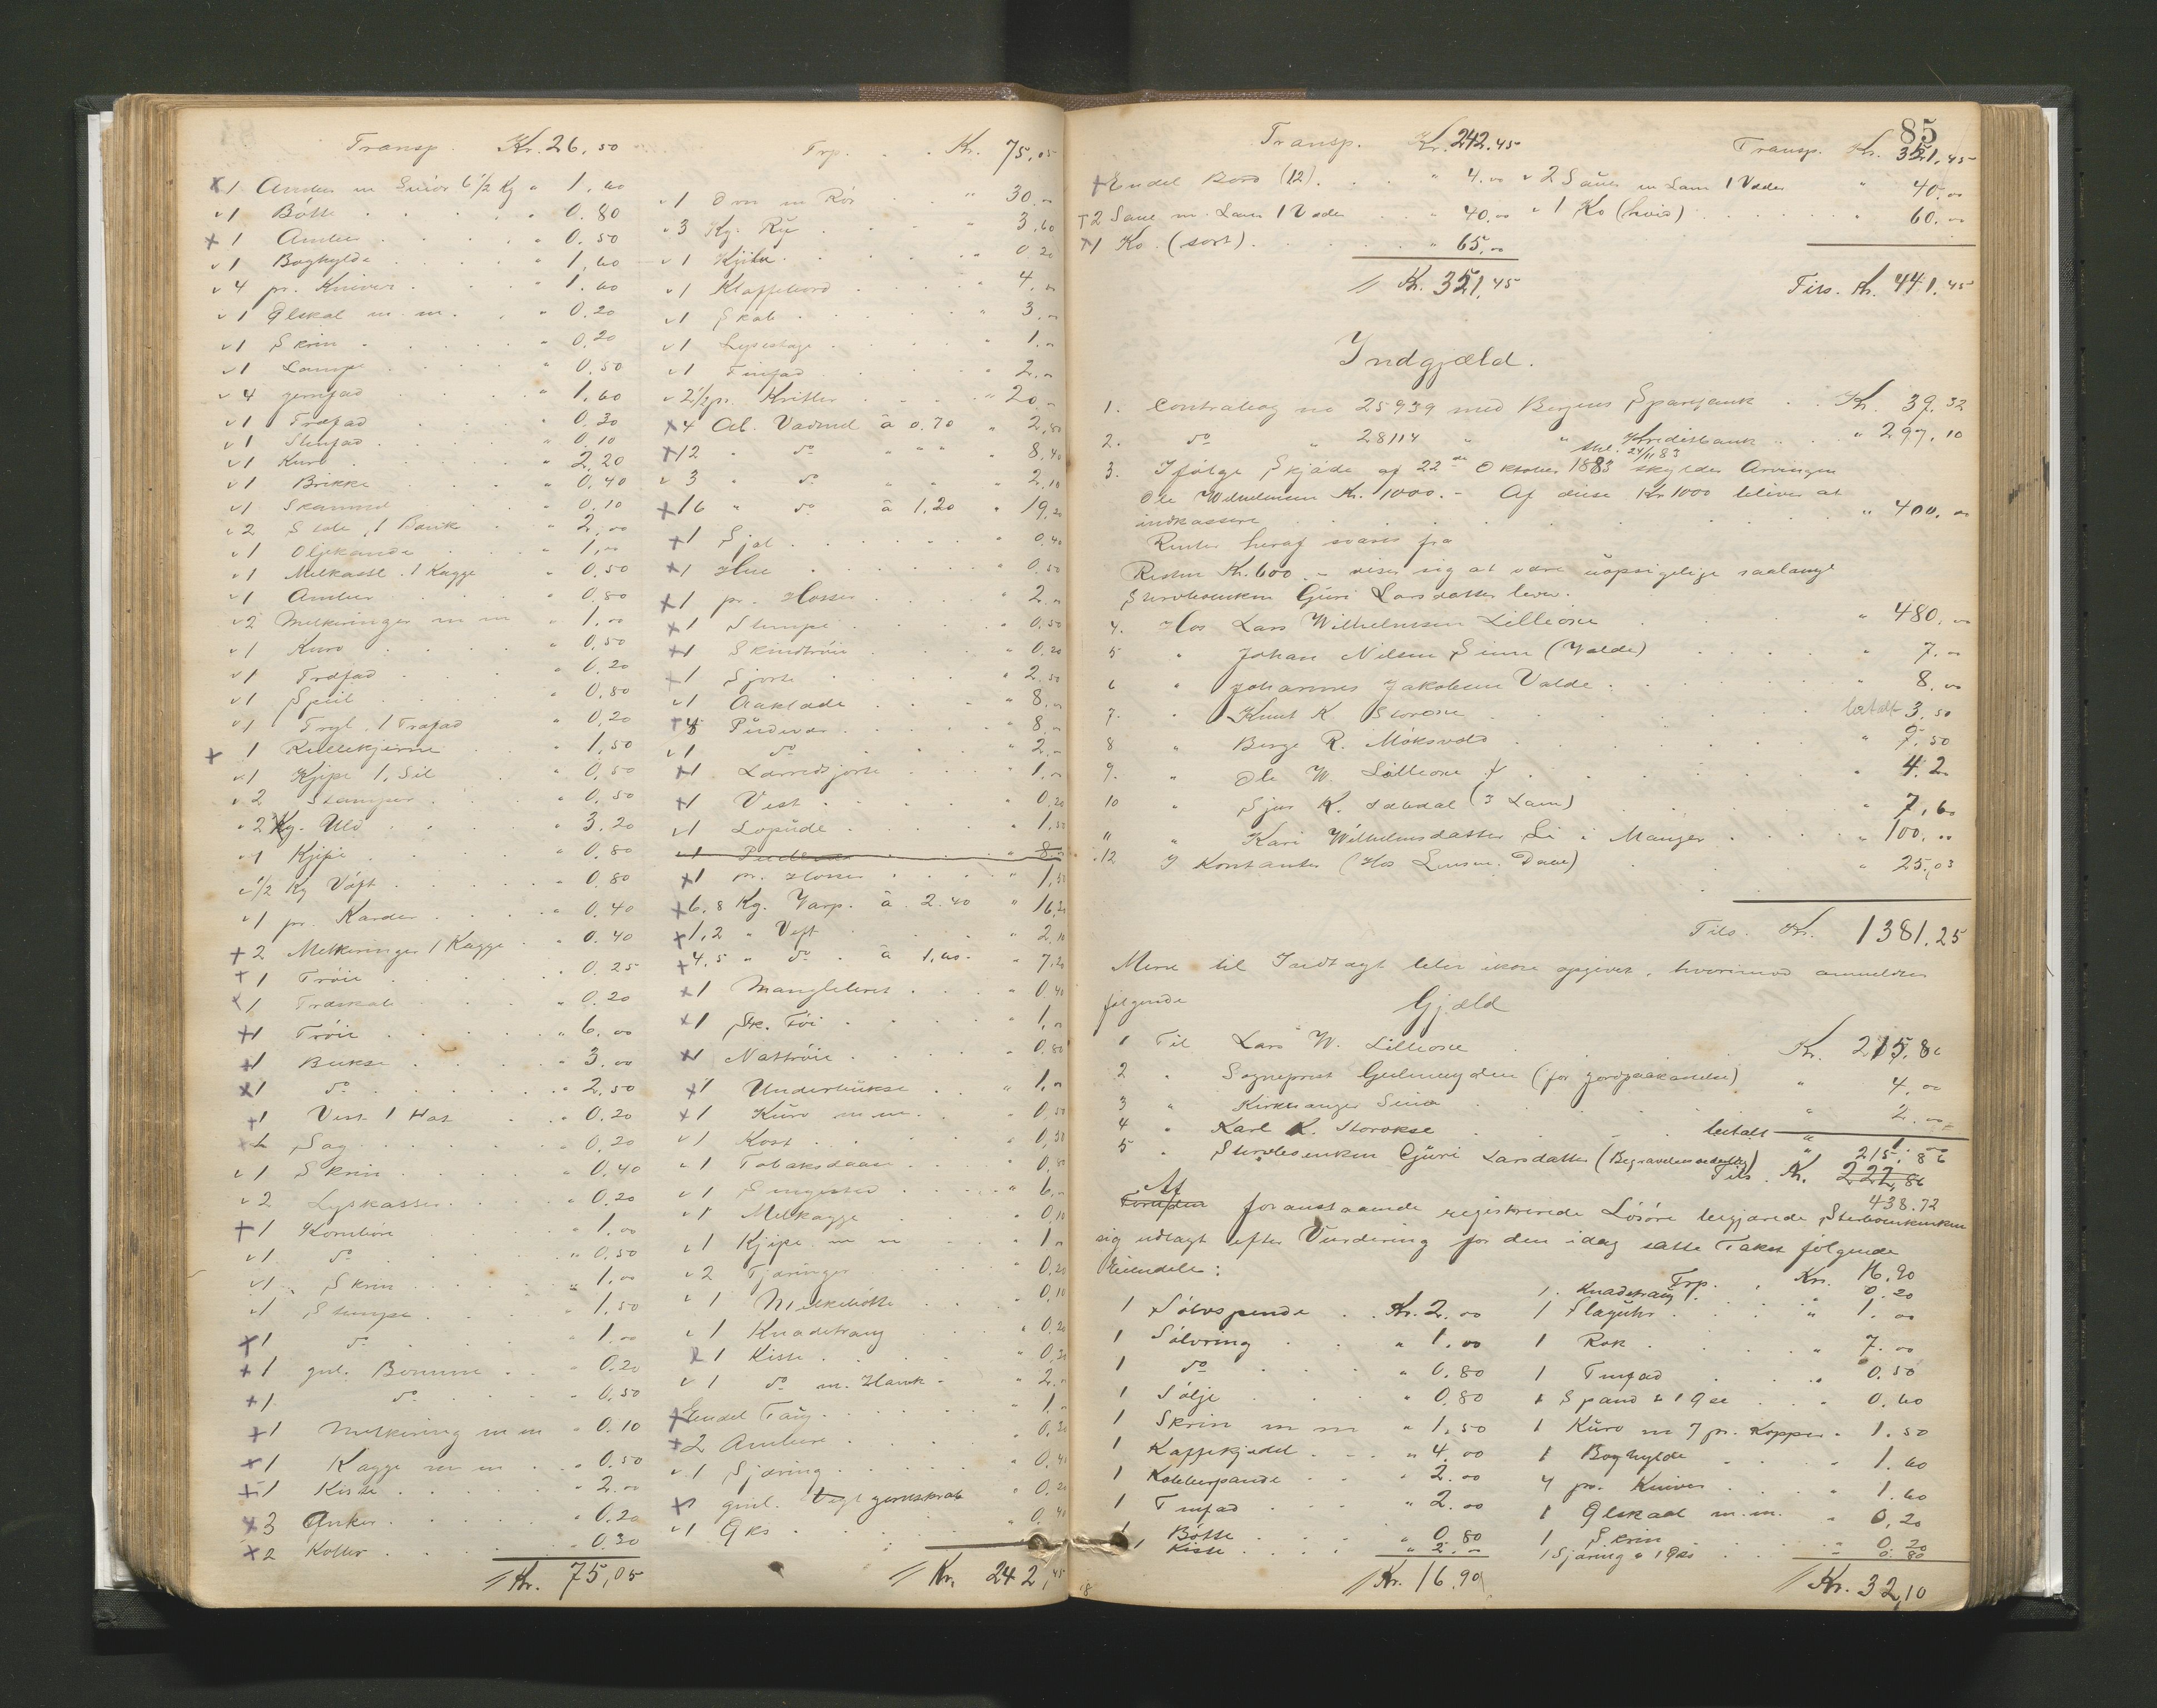 Transp. Kr. 26,50
x 1 Ambar m Smör 6 1/2 Kg " 1,60
v 1 Bötte " 0.80
+ 1 Ambar " 0.50
v 1 Boghylde " 1,60
v 4 pr. Knive " 1.60
v 1 Ølskaal m. m. " 0.20
v 1 Skrin " 0.20
v 1 Lampe " 0.50
v 4 " 1.60
v 1 Træfad " 0.30
v 1 Stenfad " 0.10
v 1 Kurv " 2,20
v 1 Brikke " 0,40
v 1 Skammel " 0.10
v 2 Stole, 1 Bænk " 2,00
v 1 Oljekande " 1,00
v 1 Melkasse. 1 Kagge " 0.50
v 1 Ambar 0.80
v 2 Melkeringer m m " 1,00
v 1 Kurv " 0,50
v 1 Træfad " 0.20
v 1 " 0,80
v 1 Trygl. 1 Træfad " 0,20
+ 1 Rullekjerne 1,50
v 1 Kjipe 1. Sil " 0,50
v 2 Stamper " 0,50
" 2 Kg. Uld " 3.20
v 1 Kjipe " 0,80
v 1/2 Kg Væft " 0.80
v 1 pr. Karder " 0,40
+ 2 Melkeringer 1 Kagge " 0.40
+ 1 Tröie " 0.25
1 Træskab " 0.20
+ 1 Tröie " 6.00
+ 1 Bukse " 3.00
x 1 do " 2,50
+ 1 Vest 1 Hat " 0.20
Sag " 0,20
v 1 Skrin " 0,40
v 2 Lyskasser " 0.20
+ 1 " 1.00
v 1 do " 0,50
v 1 Skrin " 1.00
v 1 Stumpe " 1,50
x 1 do " 1.00
+ 1 gml. Bomme 0.20
+ 1 do 0,50
+ 1 Melkering m m " 0.10
+ 1 Kagge m m " 0.50
+ 1 Kiste " 2.00
+ 3 Anker " 0.20
+ 2 Koller 0.30
// Kr. 75,05
Trp. Kr. 75,05
v 1 Ovn m Rör " 30.00
" 3 Kg. Ry " 3,60
v 1 " 0 20
v 1 Klaffebord " 4,00
v 1 Skab " 3.00
v 1 Lysestage " 1.00
v 1 Tinfad " 2.00
v 2 1/2 pr. Kritter " 20 "
x 4 Al. Vadmel à 0.70 " 2,80
x 12 " do " " " 8.40
v 3 " do " " 2,10
x 16 " do à 1,20 " 19,20
x 1 Sjal " 0,40
x 1 Hue " 0.50
x 1 pr. Hoser " 2.00
x 1 Stumpe " 0,50
x 1 Skindtröie " 0.20
+ 1 Sjorte " 2.50
v 1 Aaklæde " 8.00
+ 4 Pudevar " 8.00
v 1 do " 2.00
x 1 Lærredsjorte " 1.00
x 1 Vest " 0,20
v 1 Lopude " 1,50
v 1 " 8.00
x 1 pr. Hoser " 1,50
x 6.8 Kg. Varp. à 2.40 " 16,20
x 1,2 " Veft " 2,10
+ 4,5 " do à 1,60 " 7,20
x 1 Manglebret " 0,40
x 1 Sk. Töi " 1,00
x 1 Nattröie " 0.80
x 1 Underbukse " 1,00
x 1 Kurv m m " 0,50
v 1 Kost " 0,30
v 1 Tobaksdaase " 0,50
v 1 Sengested " 6,00
v 1 Melkagge " 0,10
v 1 Kjipe m m " 1,00
v 2 Tjæringer " 0,20
v 1 Melkebötte 0.10
v 1 Knadetraug " 0.20
1 Kiste " 0,30
v 1 do m. Hank " 2.00
x Endel Taug " 1,00
x 2 Ambare " 0,30
v 1 Sjæring " 0,40
x gml. jernskrab " 0,20
v 1 Øks " 0,40
// Kr. 242,45
85
Transp. Kr. 242.45
+ Endel Bord (12) " 4.00
+ 2 Saue m. Lam 1 Væder " 40,00
x 1 Ko. (sort) " 65,00
// Kr. 351,45
Transp. Kr. 351,45
v 2 Sauer m Lam 1 Væder " 40,00
v 1 Ko (hvid) " 60.00
Tils. Kr. 441.45
Indgjæld.
1. Contrabog no 25939 med Bergens Sparebank Kr. 39,32
2. do " 28114 " " Kreditbank " 297,10
24/11 83
3. Ifölge Skjöde af 22de Oktober 1883 skylder Arvingen
Ole Wilhelmsen Kr. 1000.- Af disse Kr 1000 bliver at
indkassere " 400.00
Renter heraf svares fra
Resten Kr. 600.- viser sig at være uopsigelige saalænge
Stervboenken Guri Larsdatter lever.
4. Hos Lars Wilhelmsen Lilleose " 480,00
5 " Johan Nilsen Seim (Valde) " 7.00
6 " Johannes Jakobsen Valde " 8.00
7. " Knut K Storose betalt 3,50
8 " Berge R. Möksvold " 9,50
9. " Ole W. Lilleose " 4.20
10 " Sjur K. (3 Lam) " 7,60
" " Kari Wilhelmsdatter Li i Manger " 100,00
12 I Kontanter " 25,03
Tils. Kr. 1381,25
Mere til Indtægt blev ikke opgivet, hvorimod anmeldtes
fölgende Gjæld
1 Til Lars W. Lilleose Kr. 215,86
2 " Sogneprest (for jordpaakastelse) " 4.00
3 " Kirkesanger Seim " 2.00
4 " Karl K. Storokse betalt " 1.00
5 " Stervboenken Guri Larsdatter (Begravelsesudgifter) 215,86
Tils. Kr. 227,86
438.72
Af foranstaaende registrerede Lösöre begjærede Stervboenken
sig udlagt efter Vurdering for den idag satte Takst fölgende
Eiendele:
1 Sölvspende Kr. 2.00
1 Sölvring " 1.00
1 do " 0,80
1 Sölje " 0,80
1 Skrin m m " 1,50
1 Kaffekjedel " 4,00
1 Kobberpande " 2.00
1 Tinfad " 2.00
1 Bötte " 0,80
1 Kiste " 2.00
// Kr. 16,90
Trp. Kr. 16.90
1. Knadetraug " 0.20
1 Slaguhr " 1.00
1 Rok " 7.00
1 Tinfad " 0,50
1 Spand " 0,60
1 Kurv m 7 pr. Kopper " 1.50
1 Boghylde " 1.60
4 pr. Knive " 1.60
1 Ølskaal m.m. " 0,20
1 Skrin " 0.20
1 Sjæring " 1 Øks " 0.80
// Kr. 32,10